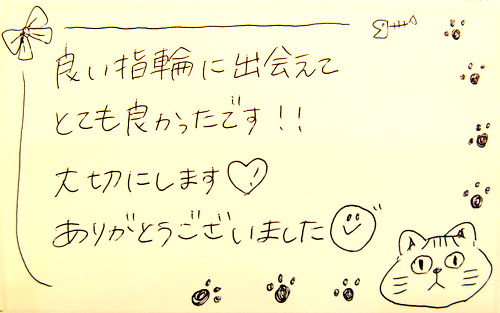 良い指輪に出会えて
とても良かったです!!
大切にします♡
ありがとうございました